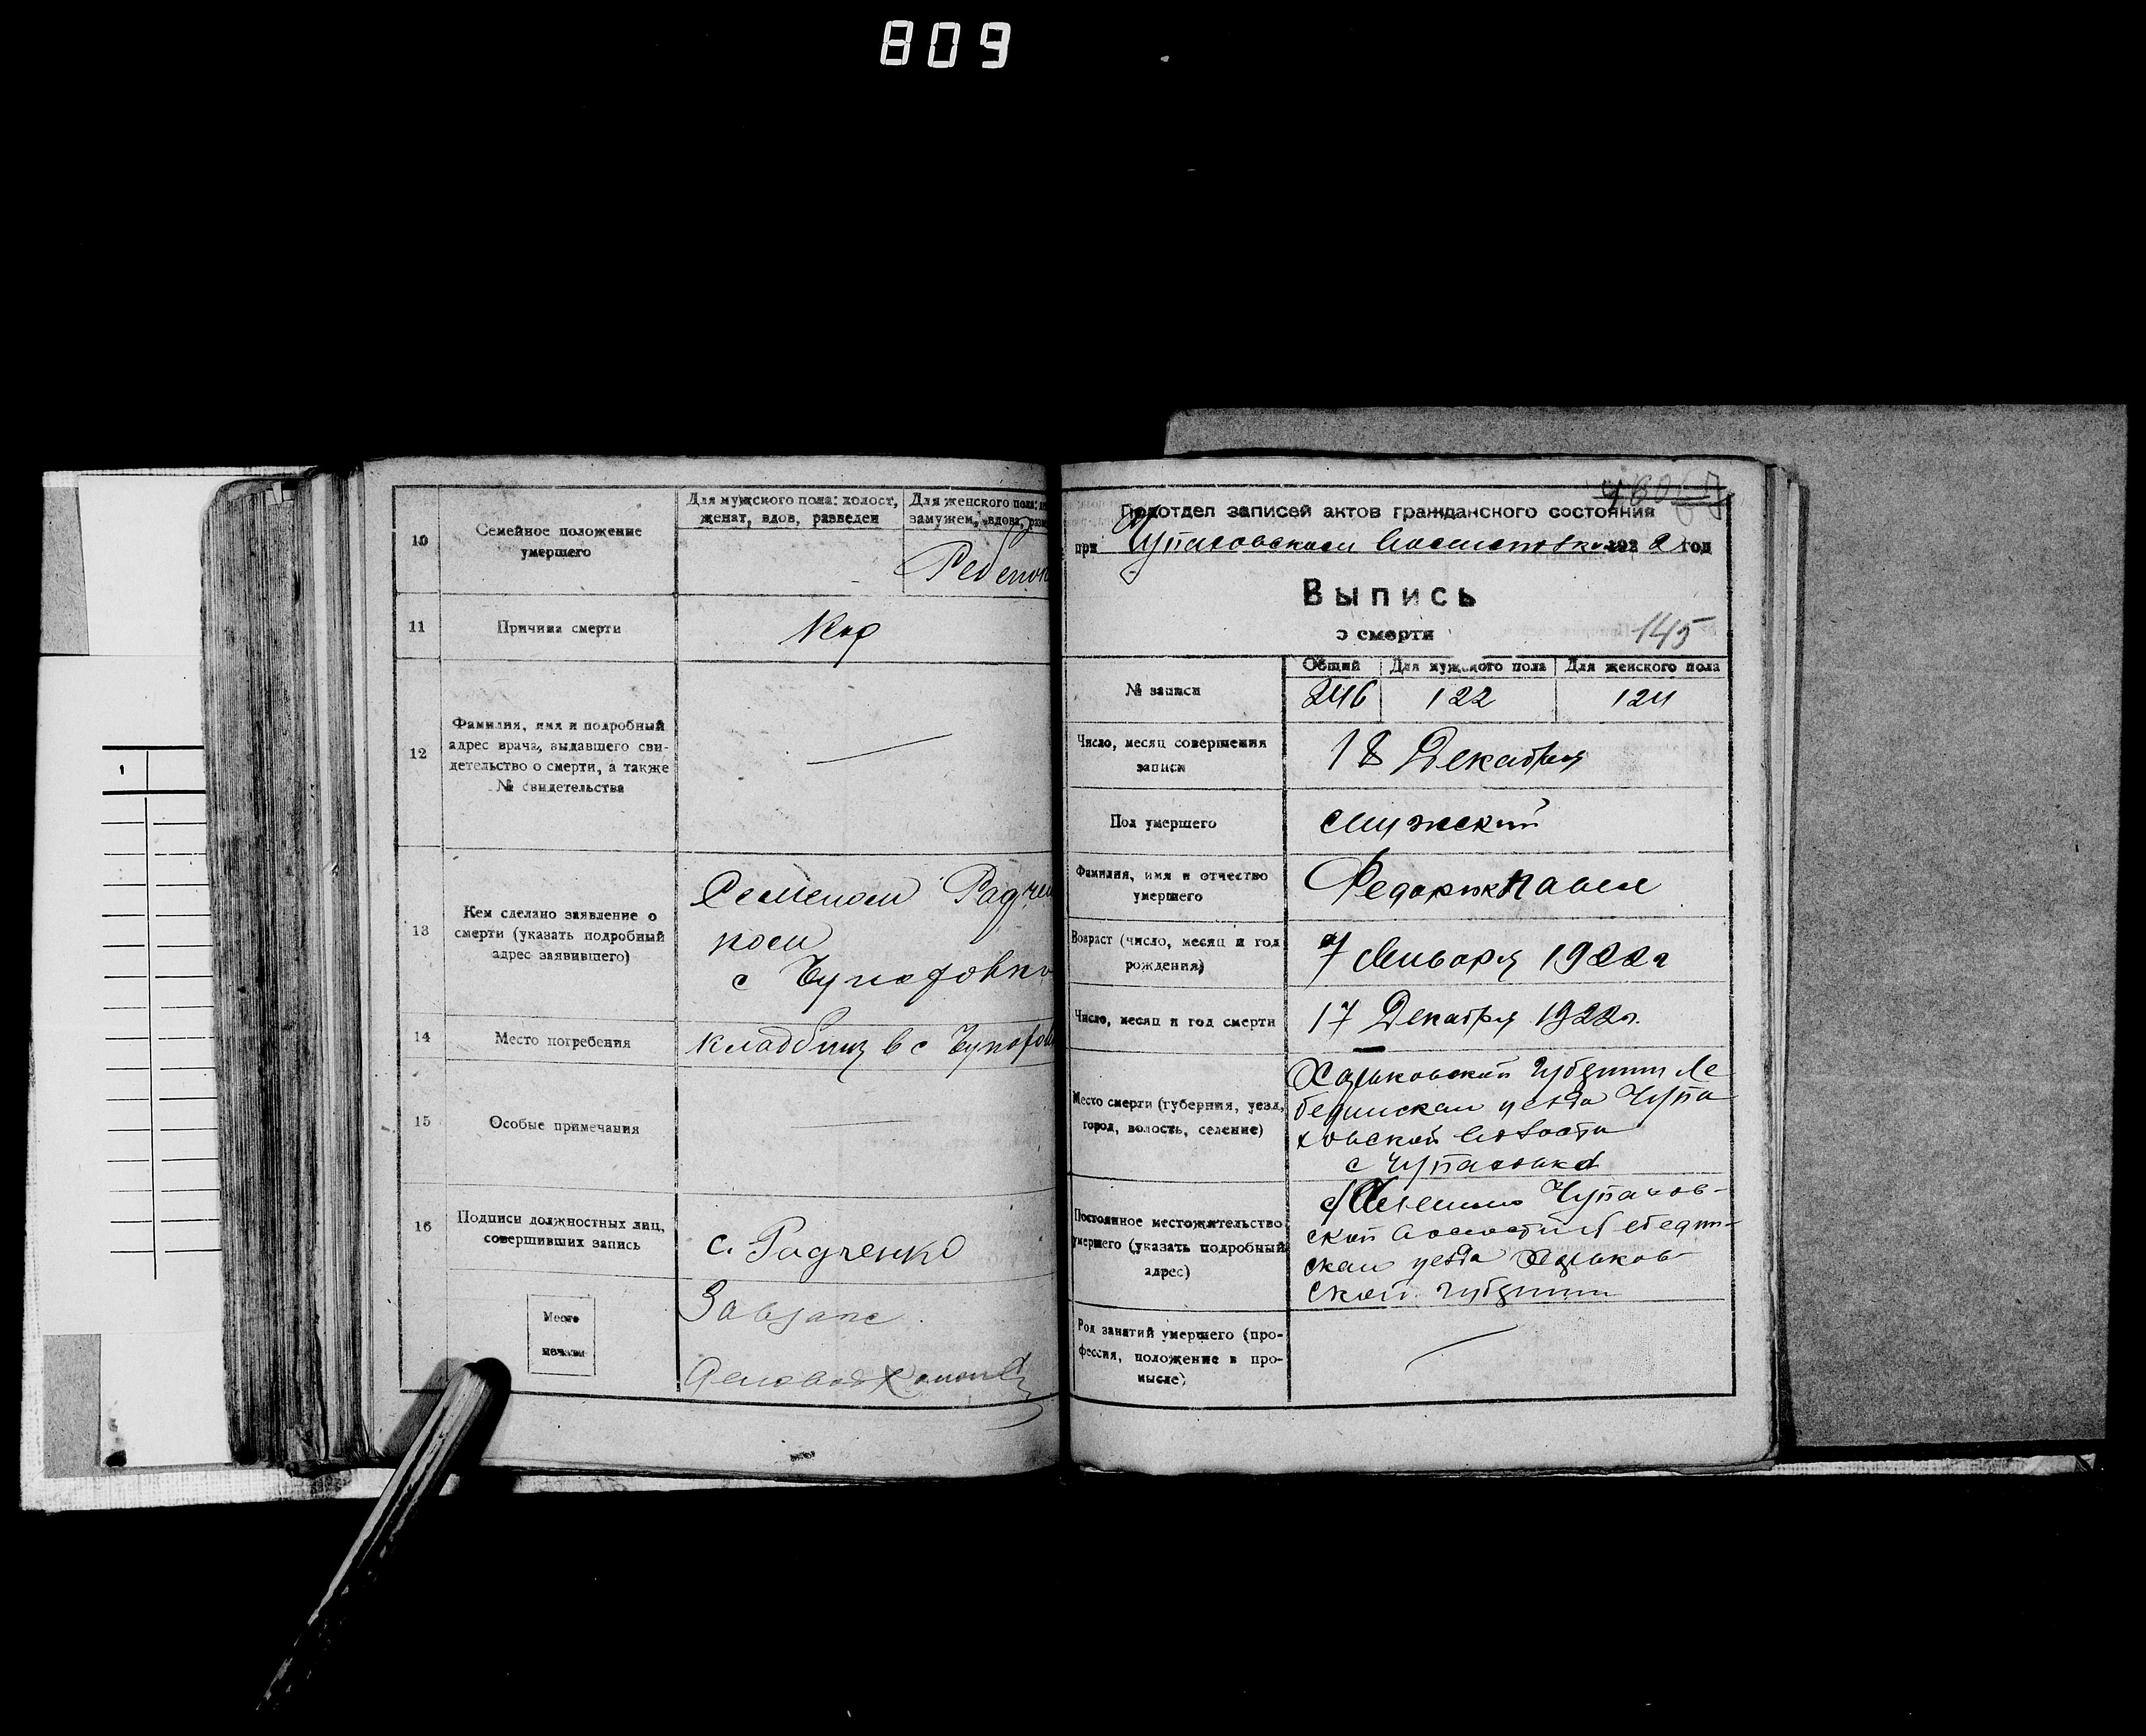 809
10
Семейное положение
умершего
Для мужского пола: холост,
женат, вдов, разведен
Для женского пола:
замужем, вдова,
Ребенок
11
Причина смерти
Кор
12
Фамилия, имя и подробный
адрес врача, выдавшего сви-
детельство о смерти, а также
№ свидетельства
13
Кем сделано заявление о
смерти (указать подробный
адрес заявившего)
Семеном Радчен
ком
с
14
Место погребения
кладбищ в с
15
Особые примечания
16
Подписи должностных лиц,
совершивших запись
с. Радченко
Место
печати
Завзапс
145
Подотдел записей актов гражданского состояния
при Чупаховском 1922 год
Выпись
о смерти
№ записи
Общий
Для мужского пола
Для женского пола
246
122
124
Число, месяц совершения
записи
18 Декабря
Пол умершего
мужский
Фамилия, имя и отчество
умершего
Павел
Возраст (число, месяц и год
рождения)
7 Января 1922 г
Число, месяц и год смерти
17 Декабря 1922 г.
Место смерти (губерния, уезд,
город, волость, селение)
Харьковской губернии Ле
бединскаи уезда Чупа
ховской волости
с Чупаховка
Постоянное местожительство
умершего (указать подробный
адрес)
Чупахов-
ской волости Лебедин-
скаи уезда Харьков
ской губернии
Род занятий умершего (про-
фессия, положение в про-
мысле)
1